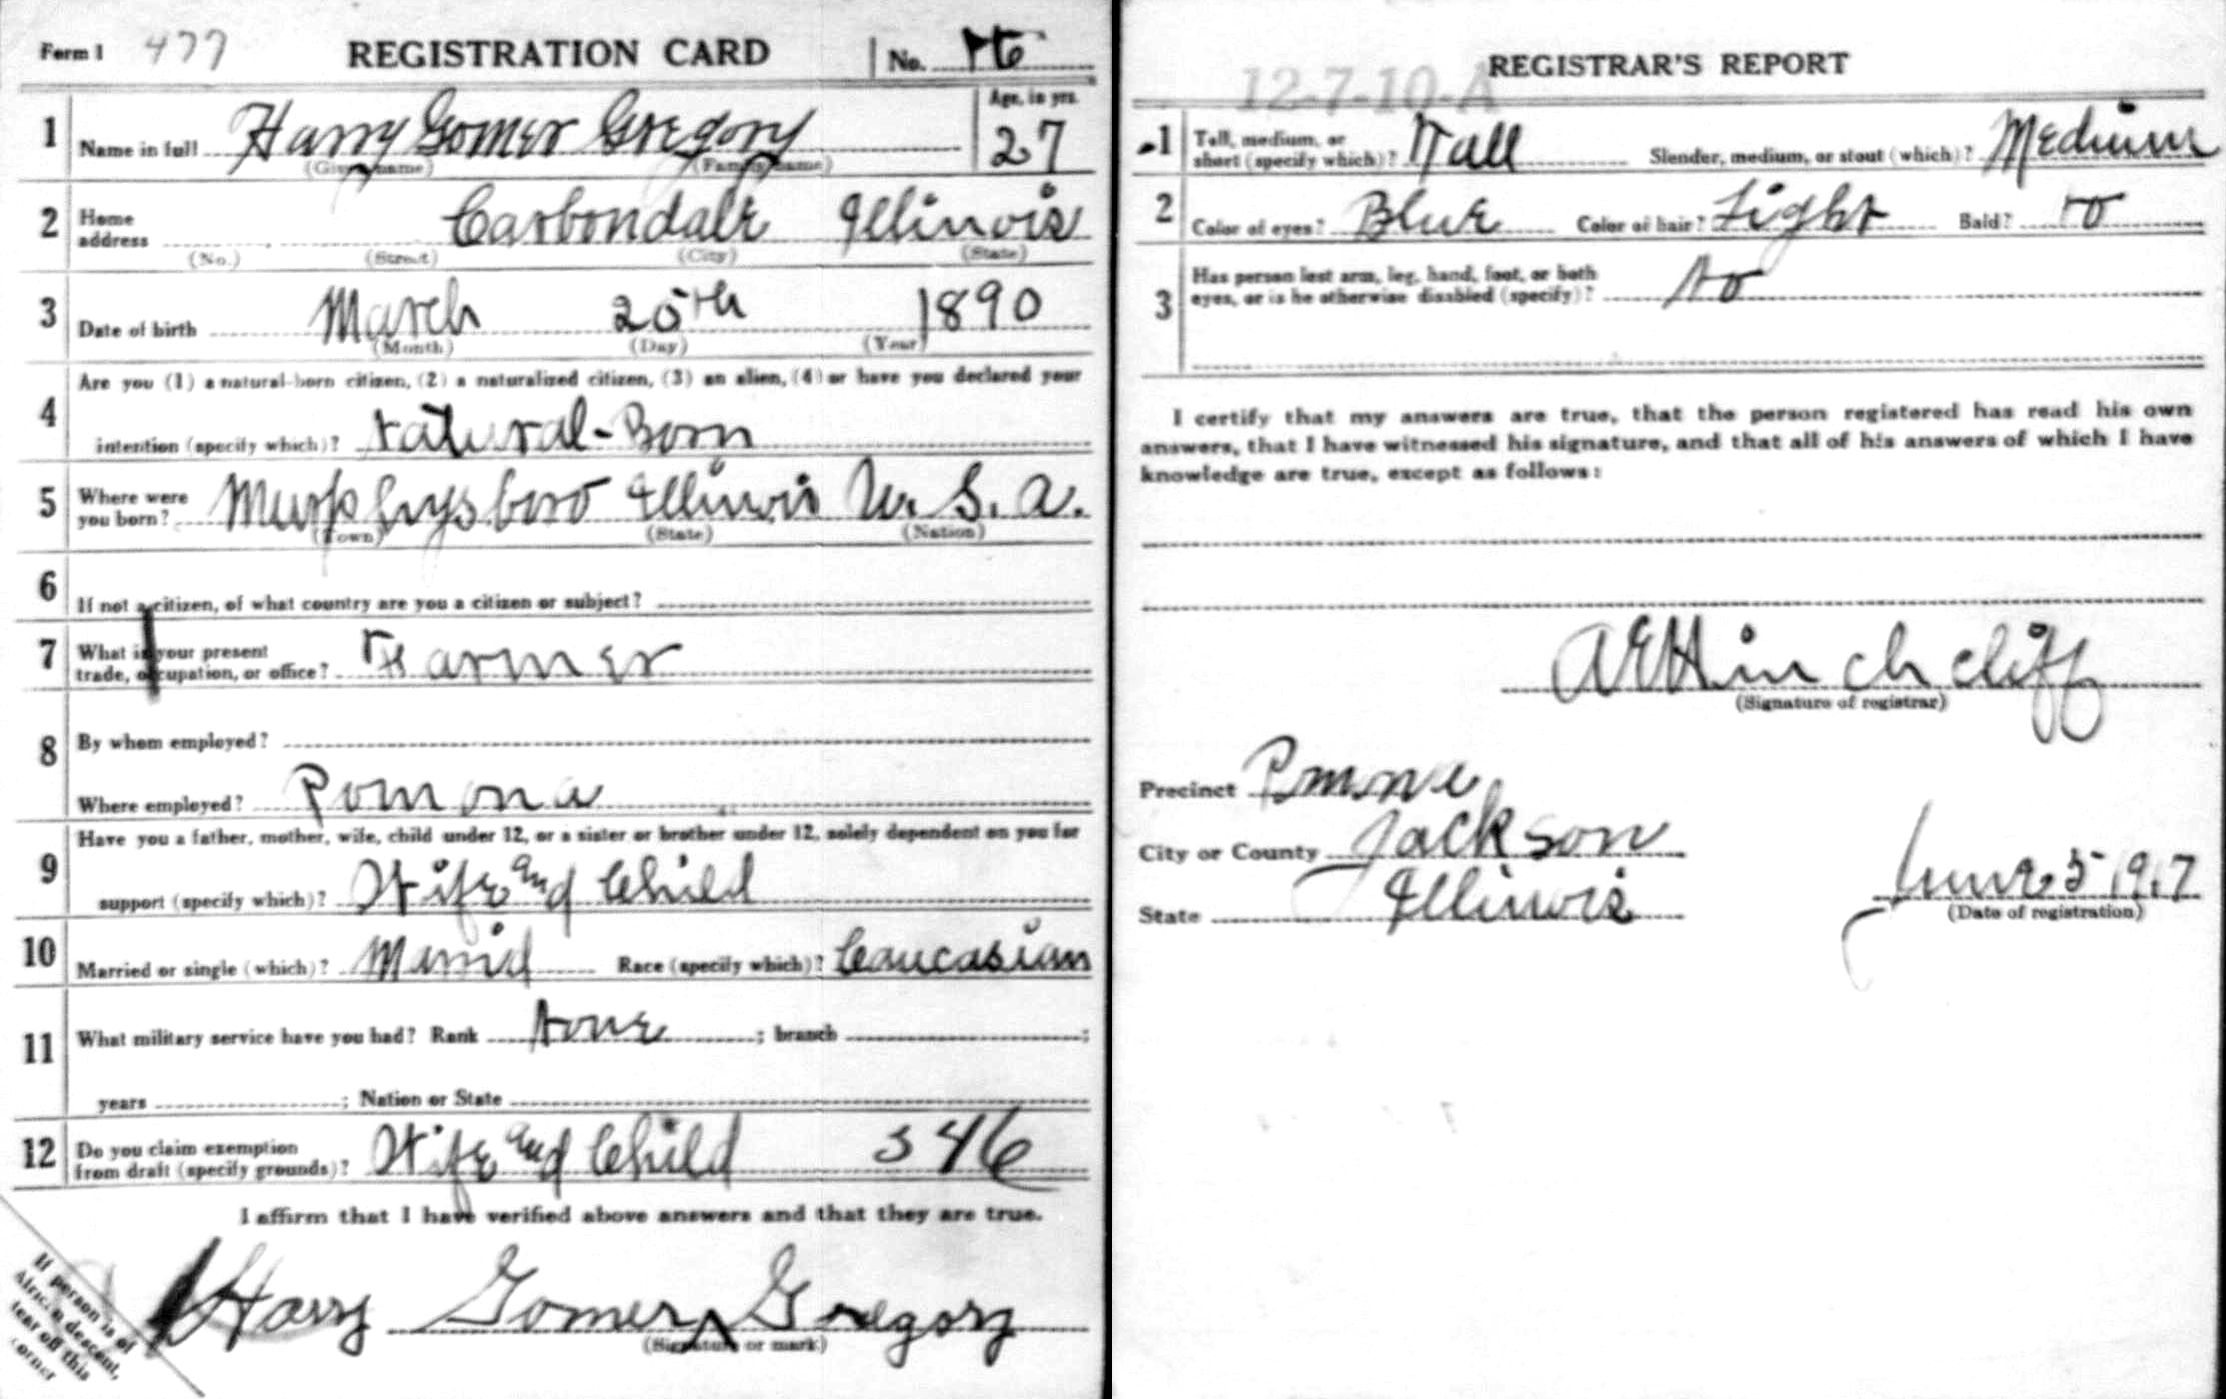 Form 1 477 REGISTRATION CARD No. 46
1 Name in full Harry Gomer Gregory Age, in yrs. 27
(Given name) (Family name)
2 Home address Carbondale Illinois
(No.) (Street) (City) (State)
3 Date of birth March 25th 1890
(Month) (Day) (Year)
4 Are you (1) a natural-born citizen, (2) a naturalized citizen, (3) an alien, (4) or have you declared your
intention (specify which)? Natural-Born
5 Where were you born? Murphysboro Illinois U. S. A.
(Town) (State) (Nation)
6 If not a citizen, of what country are you a citizen or subject?
7 What is your present
trade, occupation, or office? Farmer
8 By whom employed?
Where employed? Pomona
9 Have you a father, mother, wife, child under 12, or a sister or brother under 12, solely dependent on you for
support (specify which)? Wife and Child
10 Married or single (which)? Married Race (specify which)? Caucasian
11 What military service have you had? Rank None ; branch ;
years ; Nation or State
12 Do you claim exemption
from draft (specify grounds)? Wife and Child 346
I affirm that I have verified above answers and that they are true.
Harry Gomer Gregory
(Signature or mark)
If person is of
African descent,
tear off this
corner
REGISTRAR'S REPORT
12-7-10-A
1 Tall, medium, or
short (specify which)? Tall Slender, medium, or stout (which)? Medium
2 Color of eyes? Blue Color of hair? Light Bald? No
3 Has person lost arm, leg, hand, foot, or both
eyes, or is he otherwise disabled (specify)? No
I certify that my answers are true, that the person registered has read his own
answers, that I have witnessed his signature, and that all of his answers of which I have
knowledge are true, except as follows:
A E Hinchcliff
(Signature of registrar)
Precinct Pomona
City or County Jackson
State Illinois
June 5 1917
(Date of registration)